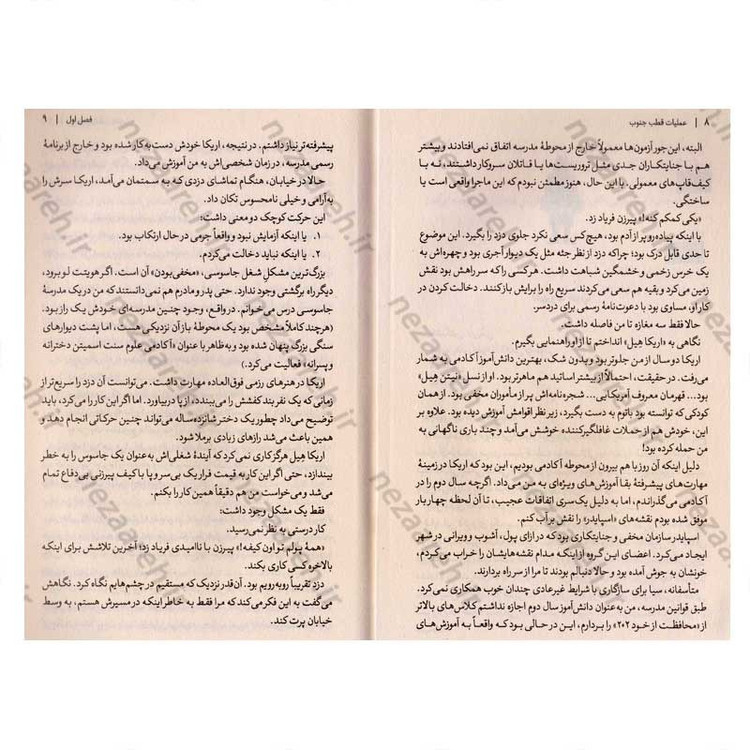 ۸ | عملیات قطب جنوب
البته، این‌جور آزمون‌ها معمولاً خارج از محوطهٔ مدرسه اتفاق نمی‌افتادند و بیشتر
هم با جنایتکاران جدی مثل تروریست‌ها یا قاتلان سروکار داشتند، نه با
کیف‌قاپ‌های معمولی. با این حال، هنوز مطمئن نبودم که این ماجرا واقعی است یا
ساختگی.
«یکی کمکم کنه!» پیرزن فریاد زد.
با اینکه پیاده‌رو پر از آدم بود، هیچ‌کس سعی نکرد جلوی دزد را بگیرد. این موضوع
تا حدی قابل درک بود؛ چراکه دزد از نظر جثه مثل یک دیوار آجری بود و چهره‌اش به
یک خرس زخمی و خشمگین شباهت داشت. هرکسی را که سر راهش بود نقش
زمین می‌کرد و بقیه هم سعی می‌کردند سریع راه را برایش باز کنند. دخالت کردن در
کار او، مساوی بود با دعوت‌نامهٔ رسمی برای دردسر.
حالا فقط سه مغازه تا من فاصله داشت.
نگاهی به «اریکا هیل» انداختم تا از او راهنمایی بگیرم.
اریکا دو سال از من جلوتر بود و بدون شک، بهترین دانش‌آموز آکادمی به شمار
می‌رفت. در حقیقت، احتمالاً از بیشتر اساتید هم ماهرتر بود. او از نسل «نیتن هیل»
بود... قهرمان معروف آمریکایی... شجره‌نامه‌ای پر از مأموران مخفی بود. از همان
کودکی که توانسته بود باتوم به دست بگیرد، زیر نظر اقوامش آموزش دیده بود. علاوه بر
این، خودش هم از حملات غافلگیرکننده خوشش می‌آمد و چند باری ناگهانی به
من حمله کرده بود!
دلیل اینکه آن روز با هم بیرون از محوطه آکادمی بودیم، این بود که اریکا در زمینهٔ
مهارت‌های پیشرفتهٔ بقا آموزش‌های ویژه‌ای به من می‌داد. اگرچه سال دوم را در
آکادمی می‌گذراندم، اما به دلیل یک سری اتفاقات عجیب، تا آن لحظه چهار بار
موفق شده بودم نقشه‌های «اسپایدر» را نقش بر آب کنم.
اسپایدر سازمان مخفی و جنایتکاری بود که در ازای پول، آشوب و ویرانی در شهر
ایجاد می‌کرد. اعضای این گروه از اینکه مدام نقشه‌هایشان را خراب می‌کردم،
خونشان به جوش آمده بود و حالا دنبالم بودند تا مرا از سر راه بردارند.
متأسفانه، سیا برای سازگاری با شرایط غیرعادی چندان خوب همکاری نمی‌کرد.
طبق قوانین مدرسه، من به عنوان دانش‌آموز سال دوم اجازه نداشتم کلاس‌های بالاتر
از «محافظت از خود ۲۰۲» را بردارم، این در حالی بود که واقعاً به آموزش‌های
فصل اول | ۹
پیشرفته‌تر نیاز داشتم. در نتیجه، اریکا خودش دست‌به‌کار شده بود و خارج از برنامهٔ
رسمی مدرسه، در زمان شخصی‌اش به من آموزش می‌داد.
حالا در خیابان، هنگام تماشای دزدی که به سمتمان می‌آمد، اریکا سرش را
به‌آرامی و خیلی نامحسوس تکان داد.
این حرکت کوچک دو معنی داشت:
۱. یا اینکه آزمایش نبود و واقعاً جرمی در حال ارتکاب بود.
۲. یا اینکه نباید دخالت می‌کردم.
بزرگ‌ترین مشکلِ شغل جاسوسی، «مخفی‌بودن» آن است. اگر هویتت لو برود،
دیگر راه برگشتی وجود ندارد. حتی پدر و مادرم هم نمی‌دانستند که من در یک مدرسهٔ
جاسوسی درس می‌خوانم. در واقع، وجود چنین مدرسه‌ای خودش یک راز بود.
(هرچند کاملاً مشخص بود یک محوطهٔ باز آن نزدیکی هست، اما پشت دیوارهای
سنگی بزرگ پنهان شده بود و به‌ظاهر با عنوان «آکادمی علوم سنت اسمیتن دخترانه
و پسرانه» فعالیت می‌کرد.)
اریکا در هنرهای رزمی فوق‌العاده مهارت داشت. می‌توانست آن دزد را سریع‌تر از
زمانی که یک نفر بند کفشش را می‌بندد، از پا دربیاورد. اما اگر این کار را می‌کرد، باید
توضیح می‌داد چطور یک دختر شانزده‌ساله می‌تواند چنین حرکاتی انجام دهد و
همین باعث می‌شد رازهای زیادی برملا شود.
اریکا هیل هرگز کاری نمی‌کرد که آیندهٔ شغلی‌اش به‌عنوان یک جاسوس را به خطر
بیندازد، حتی اگر این کار به قیمت فرار یک بی‌سروپا با کیف پیرزنی بی‌دفاع تمام
می‌شد و می‌خواست من هم دقیقاً همین کار را بکنم.
فقط یک مشکل وجود داشت:
کار درستی به نظر نمی‌رسید.
«همهٔ پولم تو اون کیفه!» پیرزن با ناامیدی فریاد زد؛ آخرین تلاشش برای اینکه
بالاخره کسی کاری بکند.
دزد تقریباً روبه‌رویم بود. آن‌قدر نزدیک که مستقیم در چشم‌هایم نگاه کرد. نگاهش
می‌گفت به این فکر می‌کند که مرا فقط به خاطر اینکه در مسیرش هستم، به وسط
خیابان پرت کند.
nezaareh.ir